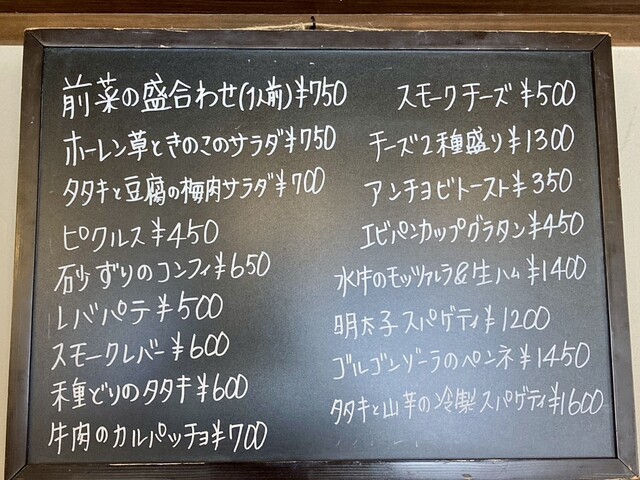 前菜の盛合わせ(1人前)¥750
ホーレン草ときのこのサラダ¥750
タタキと豆腐の梅肉サラダ¥700
ピクルス¥450
砂ずりのコンフィ¥650
レバパテ¥500
スモークレバー¥600
種どりのタタキ¥600
牛肉のカルパッチョ¥700
スモークチーズ¥500
チーズ2種盛り¥1300
アンチョビトースト¥350
エビパンカップグラタン¥450
水牛のモッツァレラ&生ハム¥1400
明太子スパゲティ¥1200
ゴルゴンゾーラのペンネ¥1450
タタキと山芋の冷製スパゲティ¥1600